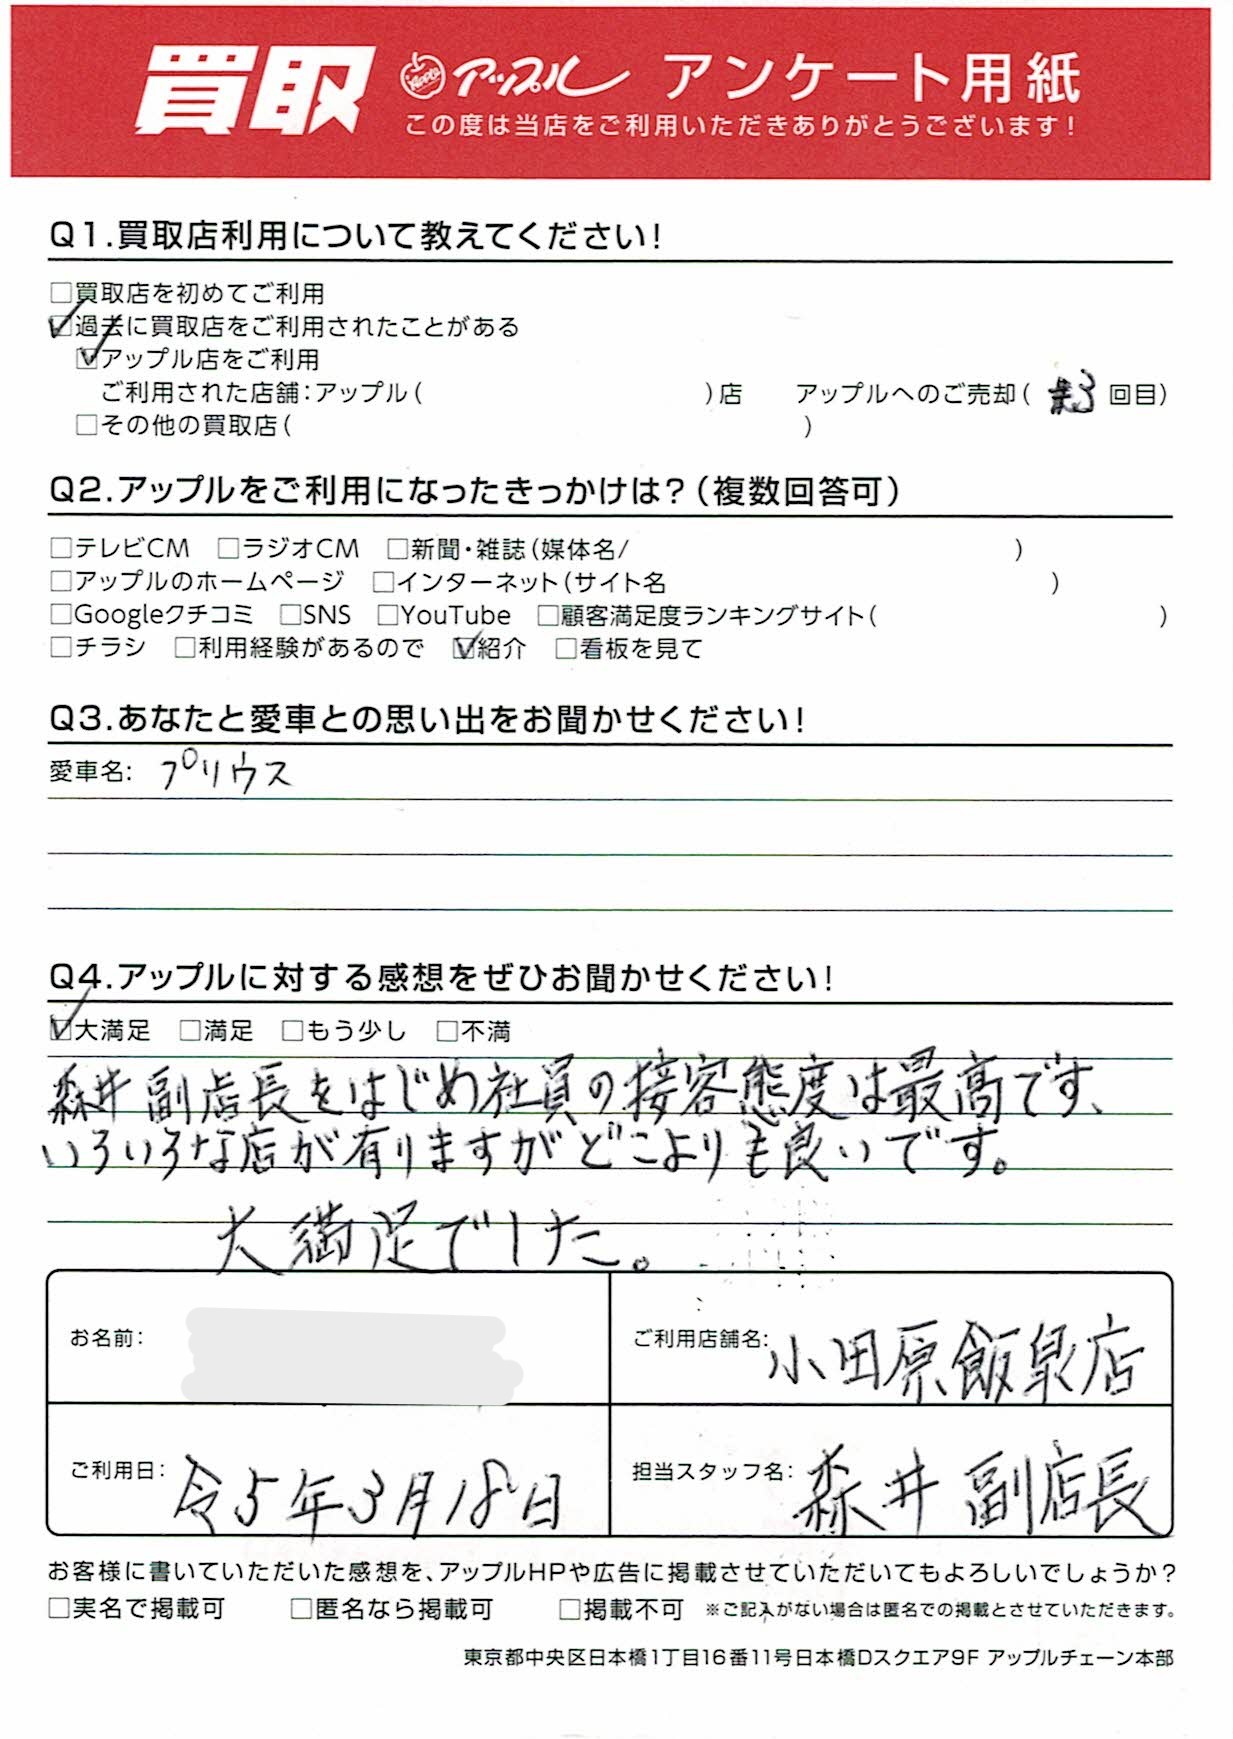 買取 Apple アップル アンケート用紙
この度は当店をご利用いただきありがとうございます！
Q1.買取店利用について教えてください！
□買取店を初めてご利用
☑過去に買取店をご利用されたことがある
☑アップル店をご利用
ご利用された店舗：アップル（ ）店 アップルへのご売却（ 3 回目）
□その他の買取店（ ）
Q2.アップルをご利用になったきっかけは？（複数回答可）
□テレビCM □ラジオCM □新聞・雑誌（媒体名/ ）
□アップルのホームページ □インターネット（サイト名 ）
□Googleクチコミ □SNS □YouTube □顧客満足度ランキングサイト（ ）
□チラシ □利用経験があるので ☑紹介 □看板を見て
Q3.あなたと愛車との思い出をお聞かせください！
愛車名： プリウス
Q4.アップルに対する感想をぜひお聞かせください！
☑大満足 □満足 □もう少し □不満
森井副店長をはじめ社員の接客態度は最高です、
いろいろな店が有りますがどこよりも良いです。
大満足でした。
お名前：
ご利用店舗名： 小田原飯泉店
ご利用日： 令5年3月18日
担当スタッフ名： 森井 副店長
お客様に書いていただいた感想を、アップルHPや広告に掲載させていただいてもよろしいでしょうか？
□実名で掲載可 □匿名なら掲載可 □掲載不可 ※ご記入がない場合は匿名での掲載とさせていただきます。
東京都中央区日本橋1丁目16番11号日本橋Dスクエア9F アップルチェーン本部